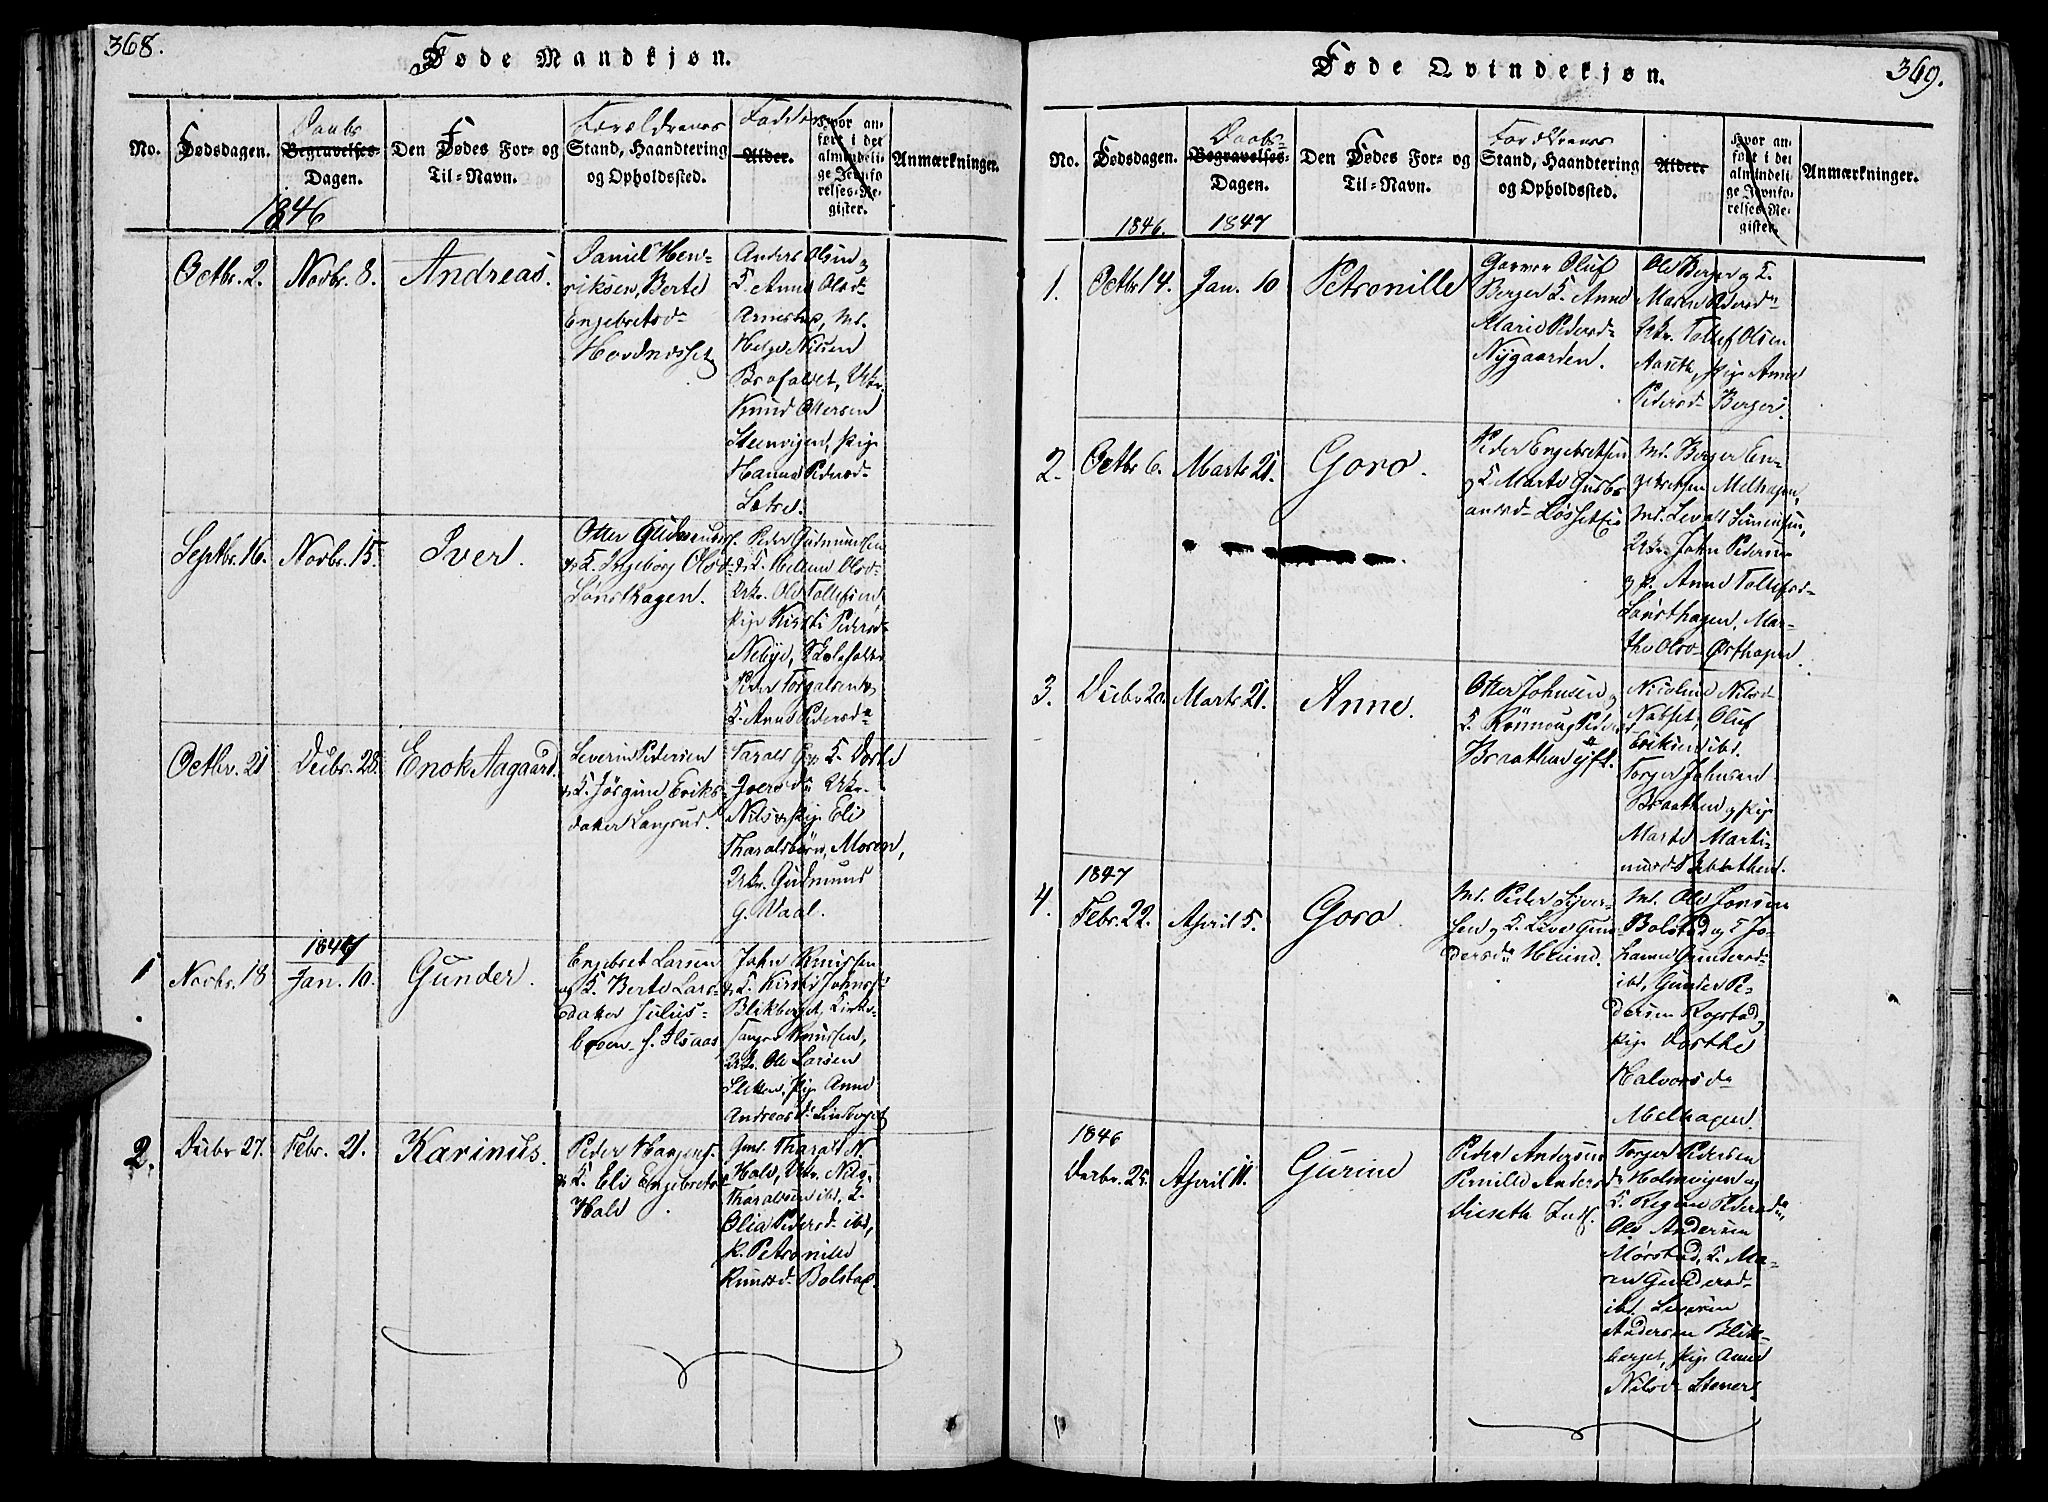 368.
Døde Mandkjøn.
No.
Dødsdagen.
Daabs
Begravelses-
Dagen.
Den Dødes For- og
Til-Navn.
Forældrenes
Stand, Haandtering
og Opholdssted.
Faddere
Alder.
Hvor an-
ført i det
almindeli-
ge Jevnfø-
relses-Re-
gister.
Anmærkninger.
1846
Octbr. 2.
Novbr. 8.
Andreas.
Daniel Hen-
riksen, Berte
Engebretsd-
Hovdnesset
Anders Olsen og
K. Anne Olsd-
Mt.
Helge Nilsen
Brofaldet, Ukr.
Knud Ottersen
Steenvigen, Pige
Hanna Pedersd-
Septbr. 16.
Novbr. 15.
Iver.
Otter Gudmunds.
og K. Ingeborg Olsd-
Lønsthagen.
Peder Gudmunsen
og K. Helene Olsd-
Ukr. Ole Tollefsen,
Pige Kirsti Pedersd-
Nebye,
Peder
K. Anne Pedersd-
Octbr. 21
Decbr. 28.
Enok Aagaard.
Severin Pedersen
og K. Jørgine Eriks-
datter Langrud.
Tarald G. og K. Dorte
Iversd- Ukr.
Nils og Pige Eli
Tharaldsbørn, Moren,
Ukr. Gudmund
G. Waal.
1
Novbr. 18
1847
Jan. 10.
Gunder.
Engebret Larsen
og K. Berte Lars-
datter Julus-
John Knudsen
og K. Kirsti Johnsd-
Blikberget,
Knudsen,
Ukr. Ole Larsen
Sletten, Pige Anne
Andreasd-
2.
Decbr 27.
Febr. 21.
Karinus.
Peder Haagens.
og K. Eli Engebretsd-
Hald
Gml. Tharald N.
Hald, Ukr. Nils
Tharaldsen ibd, K.
Olia Pedersd- ibd,
P. Petronille
Knudsd- Bolstad.
369.
Døde Qvindekjøn.
No.
Dødsdagen.
Daabs-
Begravelses-
Dagen.
Den Dødes For- og
Til-Navn.
Forældrenes
Stand, Haandtering
og Opholdssted.
Alder.
Hvor an-
ført i det
almindeli-
ge Jevnfø-
relses-Re-
gister.
Anmærkninger.
1846.
1847
1.
Octbr 14.
Jan. 10
Petronille
Garver Oluf
Berger K. Anne
Marie Pedersd-
Nygaarden.
Ole Berger og K.
Maren Pedersd-
Ukr. Tollef Olsen
Aaseth, Pige Anne
Pedersd- Berger.
2.
Octbr 6.
Marts 21.
Goro.
Peder Engebretsen
og K. Marte Gulbr
andsd- Løsset Eie
Mt. Berger En-
gebretsen Melhagen,
Mt. Simensen,
Ukr. John Pedersen
og P. Anne Tollefsd-
Lønsthagen, Mar-
the Olsd- Østhagen.
3.
Decbr 20.
Marts 21.
Anne.
Otter Johnsen og
K. Rønnoug Pedersd
Braathen Gjft.
Nicoline Nilsd
Natset, Oluf
Eriksen ibd.
Torger Johnsen
Braathen og Pige
Marte Marti-
nusd- Braathen.
4.
1847
Febr. 22.
April 5.
Goro.
Mt. Peder Syver-
sen og K. Live Gun-
dersd- Heiend.
Mt. Ole Jonsen
Bolstad og K Jo-
hanne Gundersd-
ibd, Gunder Pe-
dersen Rogstad
Pige Dorthe
Halvorsd-
Melhagen.
1846
Decbr. 25.
April 11.
Gurine
Peder Andersen
Pernille Andersd
Diseth
Torger Pedersen
Holmvigen og
K. Regine Pedersd-,
Ole Andersen
Mørstad, K. Ma-
ren Gundersd-
ibd.
Andersen Blik-
berget, Pige Anne
Nilsd-